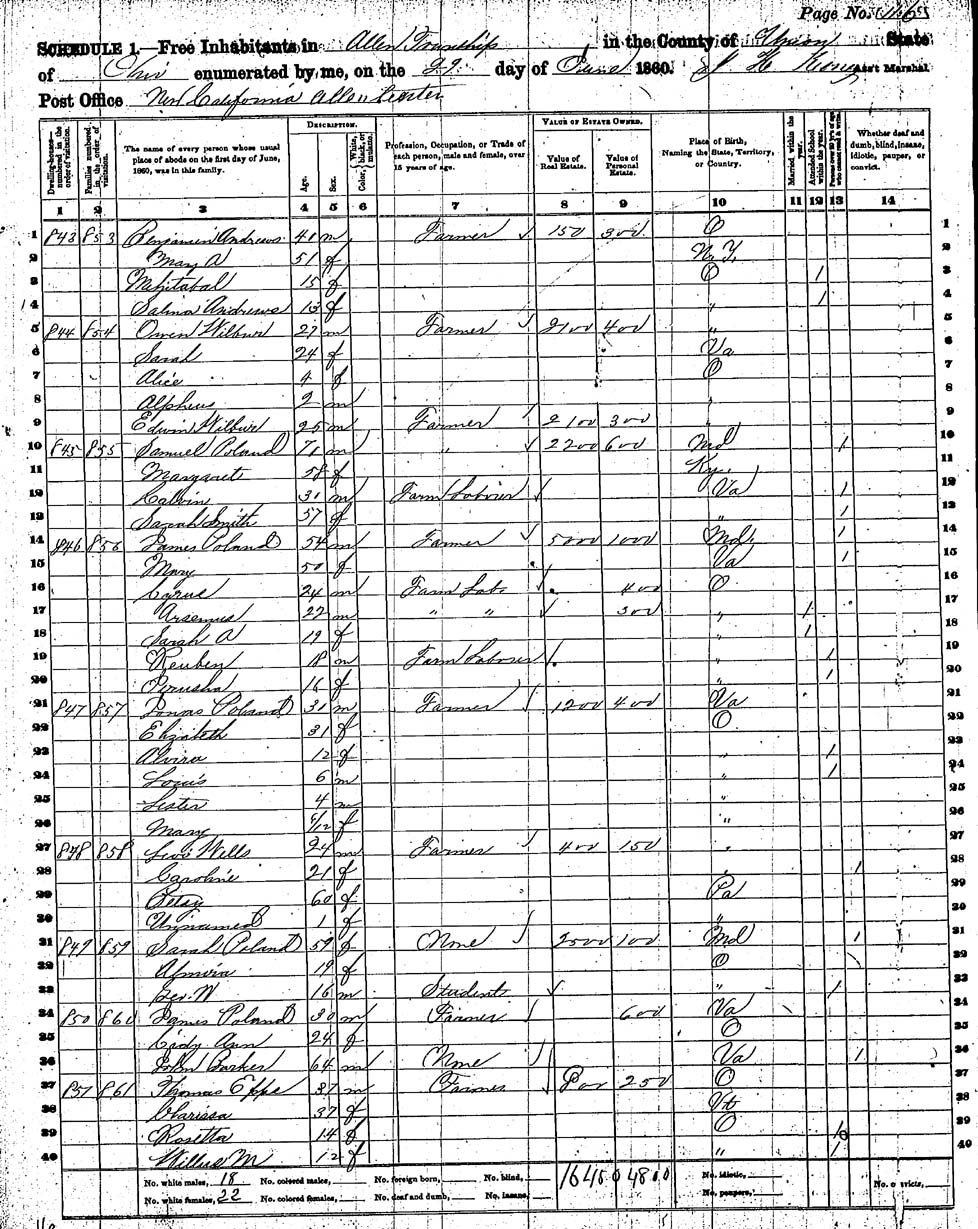 Page No. 116
SCHEDULE 1.—Free Inhabitants in Allen Township in the County of Union State
of Ohio enumerated by me, on the 29 day of June 1860. Ass't Marshal.
Post Office New California Allen Center
Dwelling-houses—numbered in the order of visitation.
Families numbered in the order of visitation.
The name of every person whose usual place of abode on the first day of June, 1860, was in this family.
DESCRIPTION.
Age.
Sex.
Color, White, black, or mulatto.
Profession, Occupation, or Trade of each person, male and female, over 15 years of age.
VALUE OF ESTATE OWNED.
Value of Real Estate.
Value of Personal Estate.
Place of Birth, Naming the State, Territory, or Country.
Married within the year.
Attended School within the year.
Persons over 20 y'rs of age who cannot read & write.
Whether deaf and dumb, blind, insane, idiotic, pauper, or convict.
1 2 3 4 5 6 7 8 9 10 11 12 13 14
1 843 853 Benjamin Andrews 41 m Farmer 150 300 O 1
2 Mary A 51 f N.Y. 2
3 Mehitabal 15 f O / 3
4 Salina Andrews 13 f " / 4
5 844 854 Owen Wilber 27 m Farmer 2100 400 " 5
6 Sarah 24 f Va 6
7 Alice 4 f O 7
8 Alpheus 2 m " 8
9 Edwin Wilber 25 m Farmer 2100 300 " 9
10 845 855 Samuel Poland 71 m " 2200 600 Md / 10
11 Margaret 58 f Ky. 11
12 Calvin 31 m Farm Laborer Va / 12
13 Sarah Smith 57 f " / 13
14 846 856 James Poland 54 m Farmer 5000 1000 Md. / 14
15 Mary 50 f Va / 15
16 Cyrus 24 m Farm Lab. 400 O 16
17 Arsemus 22 m " " 300 " / 17
18 Sarah A 19 f / 18
19 Reuben 18 m Farm Laborer " / 19
20 Perusha 16 f " / 20
21 847 857 Jonas Poland 31 m Farmer 1200 400 Va 21
22 Elizabeth 31 f O 22
23 Alvira 12 f " / 23
24 Louis 6 m " / 24
25 Lester 4 m " 25
26 Mary /12 f " 26
27 848 858 Levi Wells 24 m Farmer 400 150 " 27
28 Caroline 21 f " / 28
29 Betsy 60 f Pa 29
30 Unnamed 1 f " 30
31 849 859 Sarah Poland 59 f None 2500 100 Md / 31
32 Almira 19 f O 32
33 Geo. W 16 m Students " / 33
34 850 860 James Poland 30 m Farmer 600 Va 34
35 Ann 24 f O 35
36 John Barker 64 m None Va / 36
37 851 861 Thomas Epps 37 m Farmer 800 250 O 37
38 Clarissa 37 f Vt 38
39 Rosetta 14 f O / 39
40 Willis M 12 f " / 40
No. white males, 18 No. colored males, No. foreign born, No. blind, 16450 4800 No. idiotic, No. convicts,
No. white females, 22 No. colored females, No. deaf and dumb, No. insane, No. paupers,